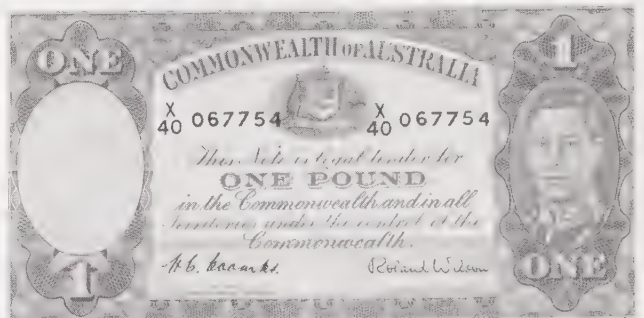 ONE 1
COMMONWEALTH OF AUSTRALIA
X/40 067754 X/40 067754
This Note is legal tender for
ONE POUND
in the Commonwealth and in all
Territories under the control of the
Commonwealth.
Roland Wilson
1 ONE